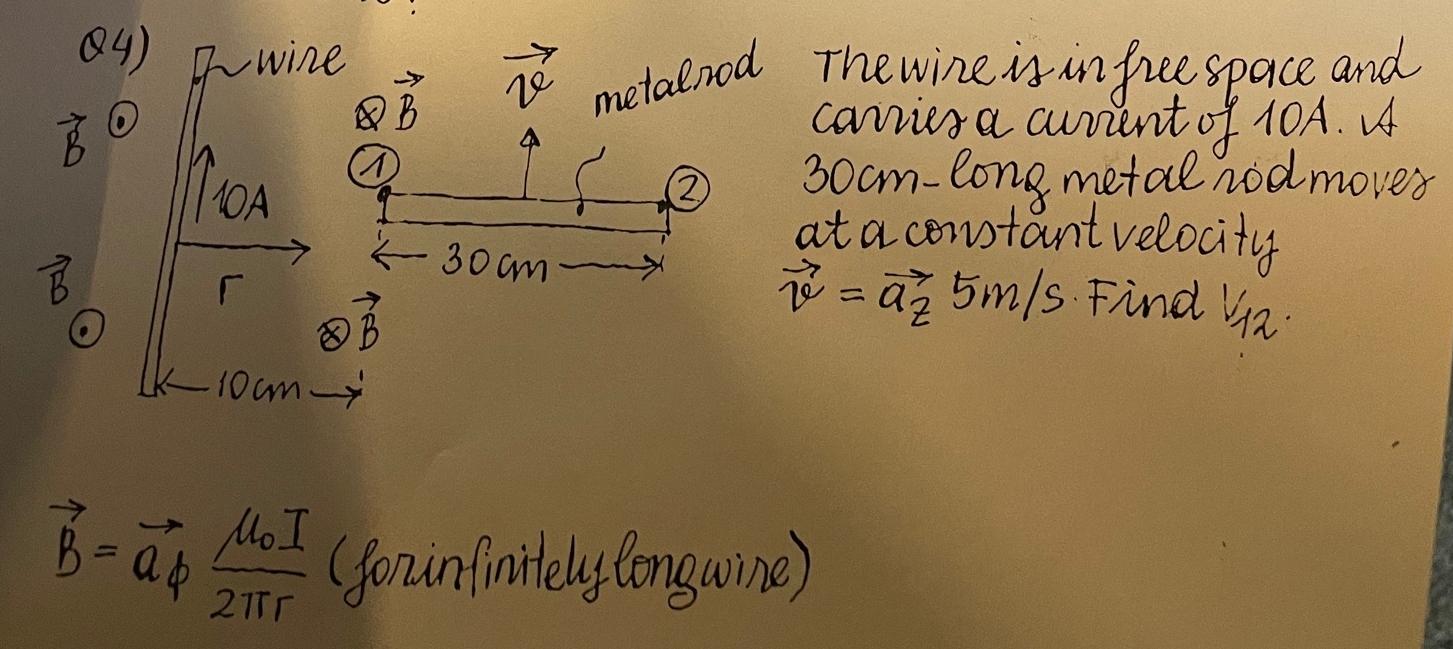 Q4)
wire
B⃗ ⊙
10A
r
B⃗
⊙
10cm
⊗ B⃗
v⃗
metal rod
①
②
30cm
⊗ B⃗
The wire is in free space and
carries a current of 10A. A
30cm-long metal rod moves
at a constant velocity
v⃗ = a⃗z 5m/s. Find V12.
B⃗ = a⃗ϕ μ0I / 2πr (for infinitely long wire)